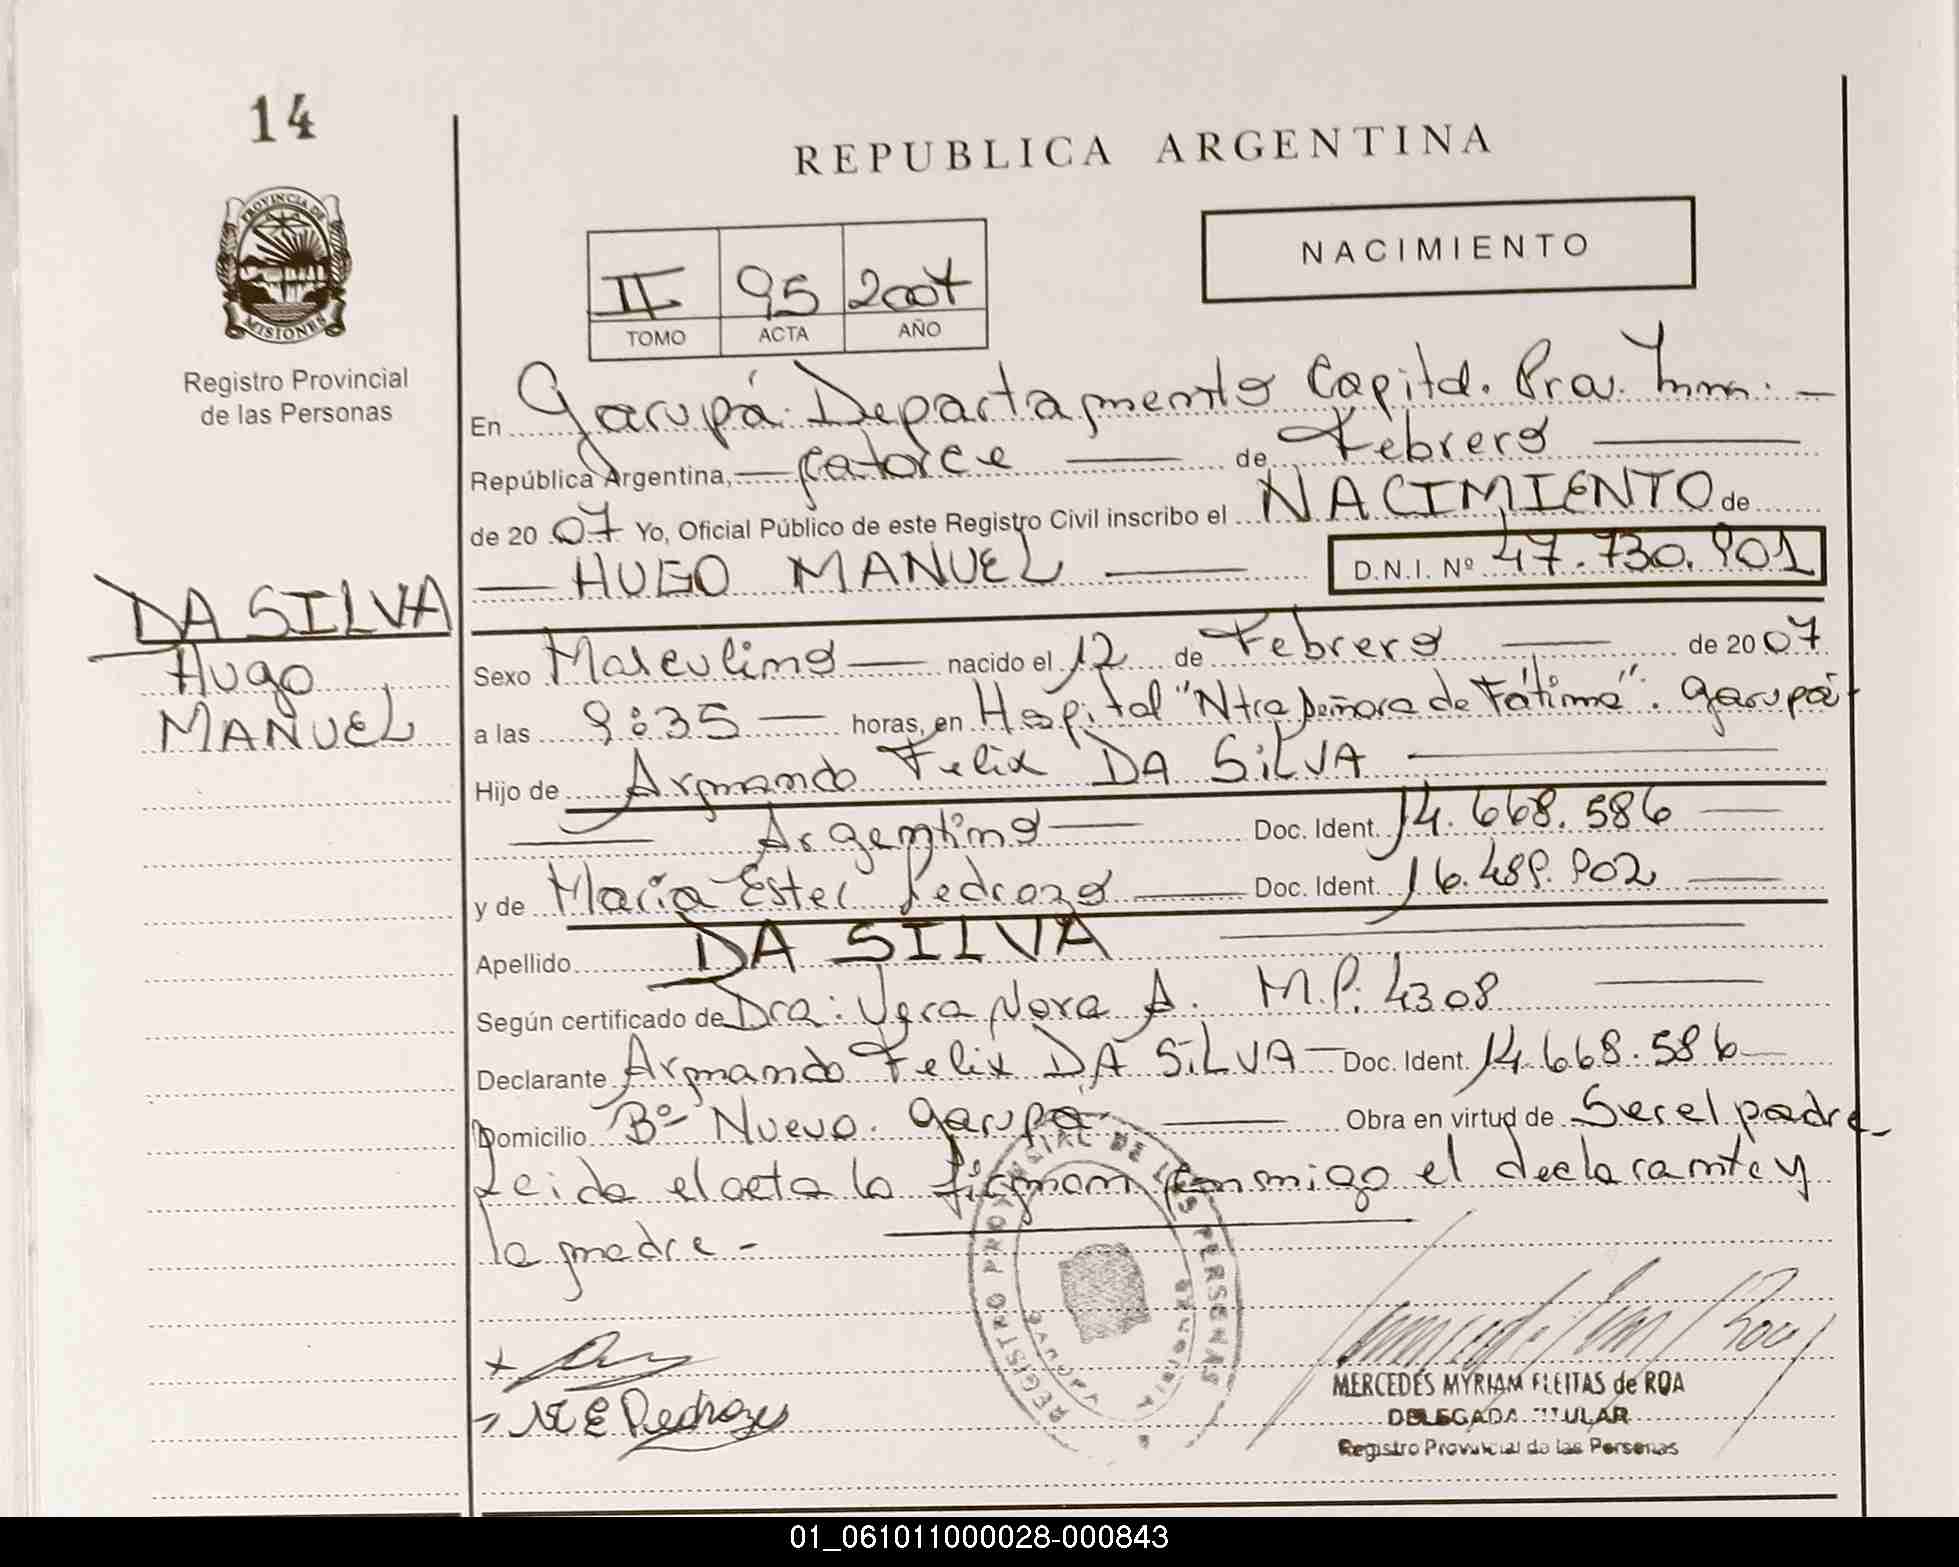 14
REPUBLICA ARGENTINA
PROVINCIA DE
MISIONES
Registro Provincial
de las Personas
NACIMIENTO
II 95 2007
TOMO ACTA AÑO
En Garupá. Departamento Capital.
República Argentina, catorce de Febrero
de 20 07 Yo, Oficial Público de este Registro Civil inscribo el NACIMIENTO de
HUGO MANUEL D.N.I. Nº 47.730.901
DA SILVA
Hugo
MANUEL
Sexo Masculino nacido el 12 de Febrero de 20 07
a las 9:35 horas, en Hospital "Ntra Señora de Fátima". Garupá
Hijo de Armando Felix DA SILVA
Argentino Doc. Ident. 14.668.586
y de María Ester Pedrozo Doc. Ident. 16.489.902
Apellido DA SILVA
Según certificado de Dra: Vera Nora A. M.P. 4308
Declarante Armando Felix DA SILVA Doc. Ident. 14.668.586
Domicilio Bº Nuevo. Garupá Obra en virtud de Ser el padre
Leida el acta la firman conmigo el declarante y
la madre -
REGISTRO PROVINCIAL DE LAS PERSONAS
M E Pedrozo
MERCEDES MYRIAM FLEITAS de ROA
DELEGADA TITULAR
Registro Provincial de las Personas
01_061011000028-000843